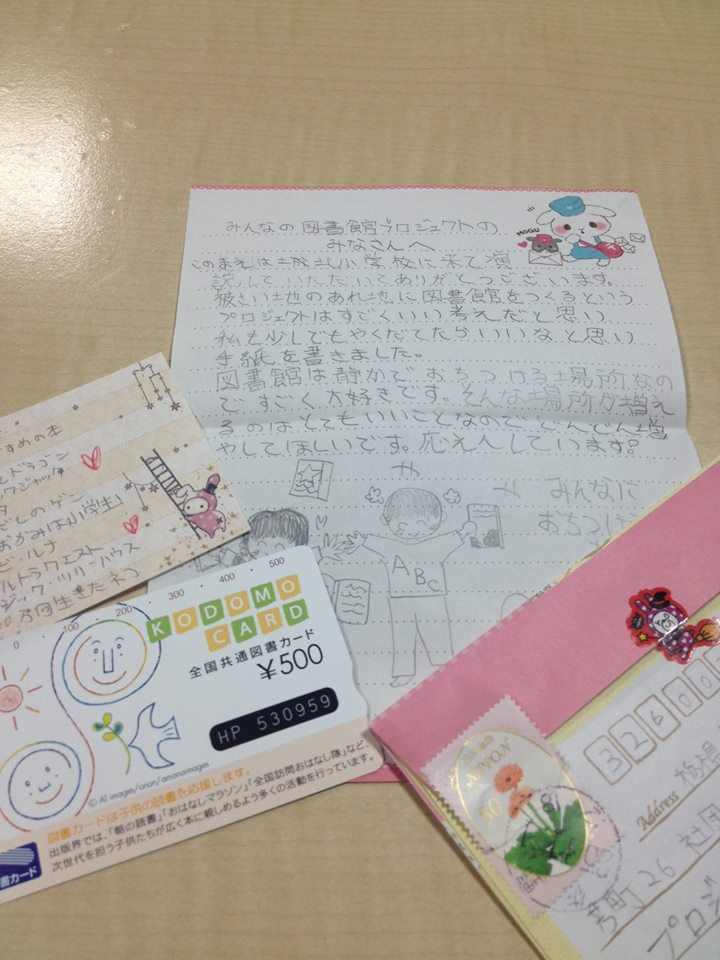 みんなの図書館プロジェクトの
みなさんへ
このまえは坂北小学校に来て演
説していただいてありがとうございます。
被さい地のあれ地に図書館をつくるという
プロジェクトはすごくいい考えだと思い
私も少しでもやくだてたらいいなと思い
手紙を書きました。
図書館は静かでおちつける場所なの
ですごく大好きです。そんな場所が増え
るのはとてもいいことなので、どんどん増
やしてほしいです。応えんしています!
みんなに
おちつける
MOGU
ABC
すすめの本
とドラゴン
ックジャック
だしのゲン
おかみは小学生!
ビ・ルナ
ルトラクエスト
ジック・ツリーハウス
万回生きたネコ
0 100 200 300 400 500
KODOMO
CARD
全国共通図書カード
¥500
HP 530959
© A1 images/orion/amanaimages
図書カードは子供の読書を応援します。
出版界では、「朝の読書」「おはなしマラソン」「全国訪問おはなし隊」など、
次世代を担う子供たちが広く本に親しめるよう多くの活動を行っています。
書カード
NIPPON
326000
Address
町26 社団
プロジ